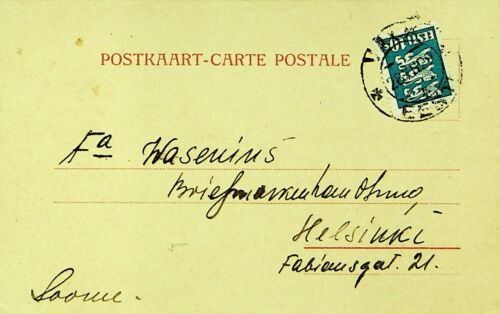 POSTKAART-CARTE POSTALE
EESTI 10
Fa Wasenius
Briefmarkenhandlung,
Helsinki
Fabiansgat. 21.
Soome.